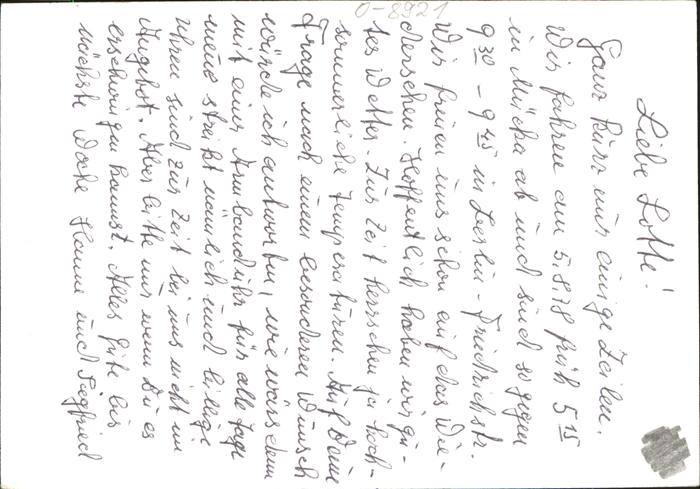 O-8921
Liebe Lotte!
Ganz kurz nur einige Zeilen.
Wir fahren am 5.8.78 früh 5 15
in Mücka ab und sind so gegen
9 30 - 9 45 in Berlin-Friedrichstr.
Wir freuen uns schon auf das Wie-
dersehen. Hoffentlich haben wir gu-
tes Wetter. Zur Zeit herrschen ja hoch-
sommerliche Temperaturen. Auf Deine
Frage nach einem besonderen Wunsch
würde ich antworten, wie wärs denn
mit einer Armbanduhr für alle Tage
meine streikt nämlich und billige
Uhren sind zur Zeit bei uns nicht im
Angebot. Aber bitte nur wenn Du es
erschwingen kannst. Alles Gute bis
nächste Woche Hanne und Siegfried